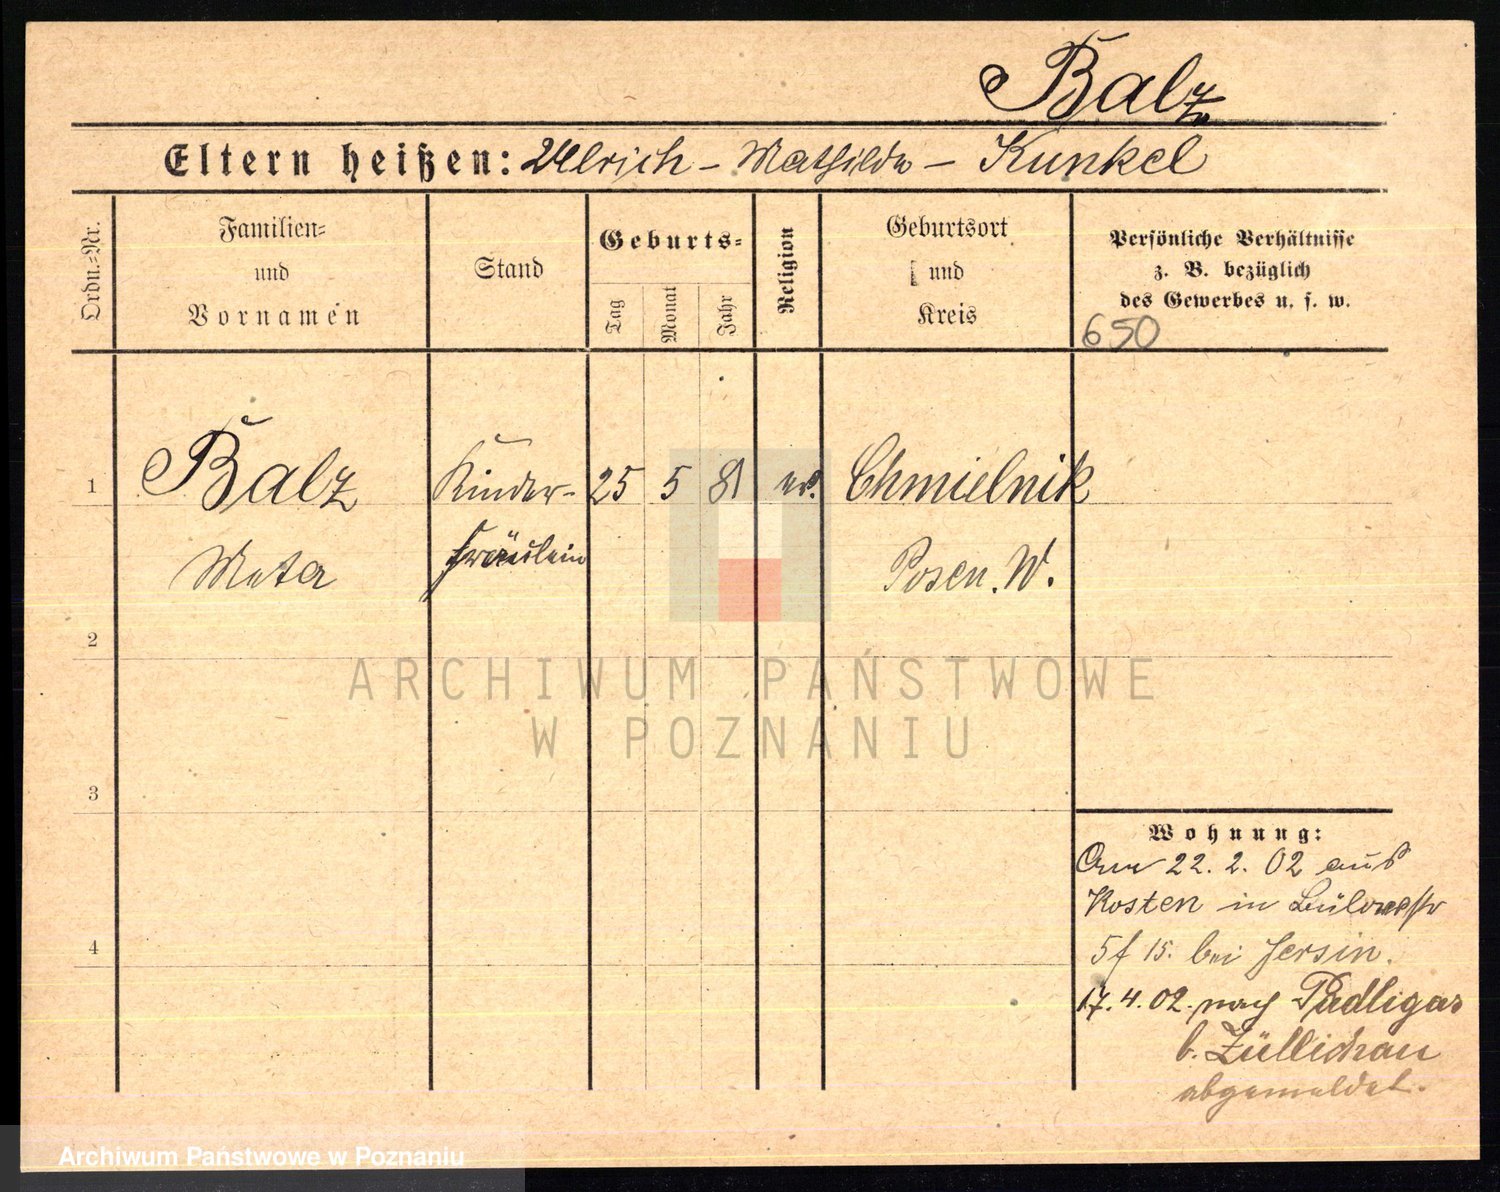 Balz
Eltern heißen: Ulrich - Mathilde - Kunkel
Ordn.=Nr.
Familien=
und
Vornamen
Stand
Geburts=
Tag
Monat
Jahr
Religion
Geburtsort
und
Kreis
Persönliche Verhältnisse
z. B. bezüglich
des Gewerbes u. s. w.
650
1
Balz
Kinder-
25 5 81 ev.
Chmielnik
Meta
fräulein
Posen. W.
2
ARCHIWUM PAŃSTWOWE
W POZNANIU
3
Wohnung:
22. 2. 02 aus
Kosten in Bülowstr
5 15. bei Jersin.
4
17. 4. 02. nach Padligar
b. Züllichau
abgemeldet.
Archiwum Państwowe w Poznaniu